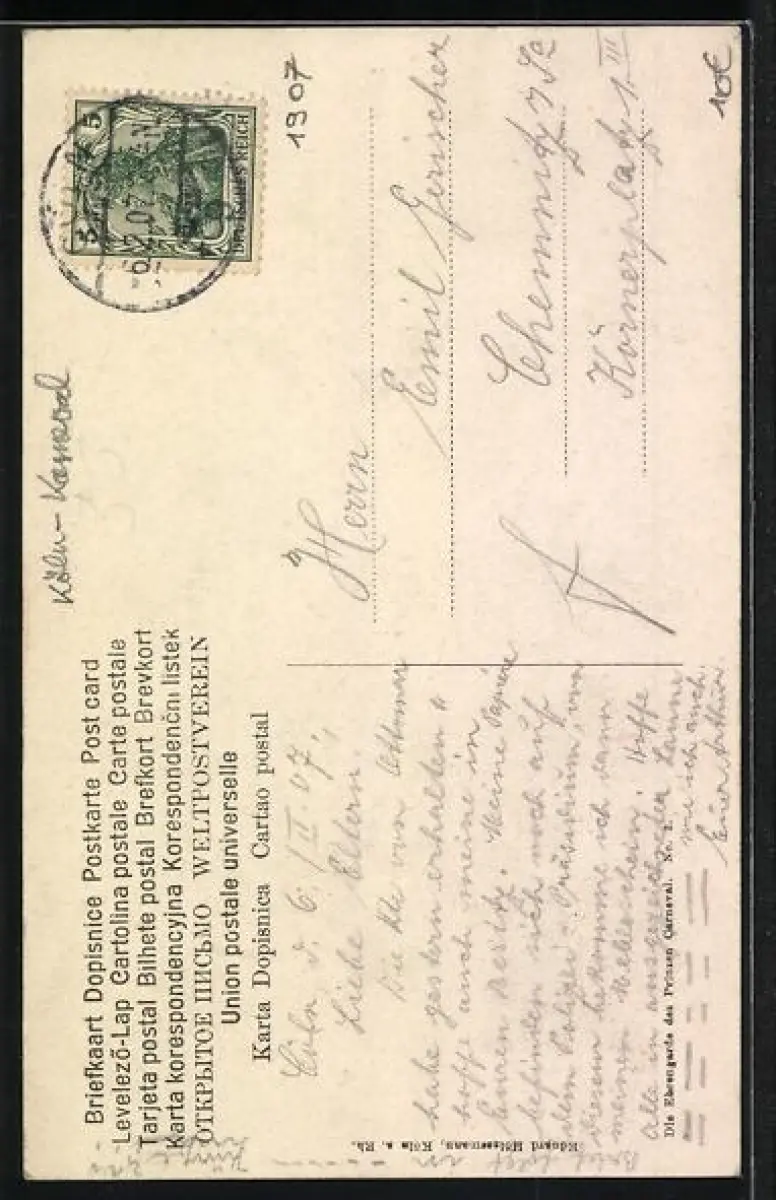 Briefkaart Dopisnice Postkarte Post card
Levelező-Lap Cartolina postale Carte postale
Tarjeta postal Bilhete postal Brefkort Brevkort
Karta korespondencyjna Korespondenční listek
ОТКРЫТОЕ ПИСЬМО WELTPOSTVEREIN
Union postale universelle
Karta Dopisnica Cartao postal
Köln-Karneval
1907
10€
5 5
DEUTSCHES REICH
Herrn
Emil Gerischer
Chemnitz
Körnerplatz 1. III
Cöln d. 6./II. 07.
Liebe Eltern.
Die von
habe gestern erhalten u
hoffe auch meine in
Euren Besitz. Meine Papiere
befinden sich noch auf
dem Polizei-Präsidium, von
diesem bekomme ich dann
meinen Meldeschein. Hoffe
alle in ausgezeichneter Laune
wie ich auch.
Euer Arthur.
Die Ehrengarde des Prinzen Carneval. No. 2.
Eduard Hölzermann, Köln a. Rh.